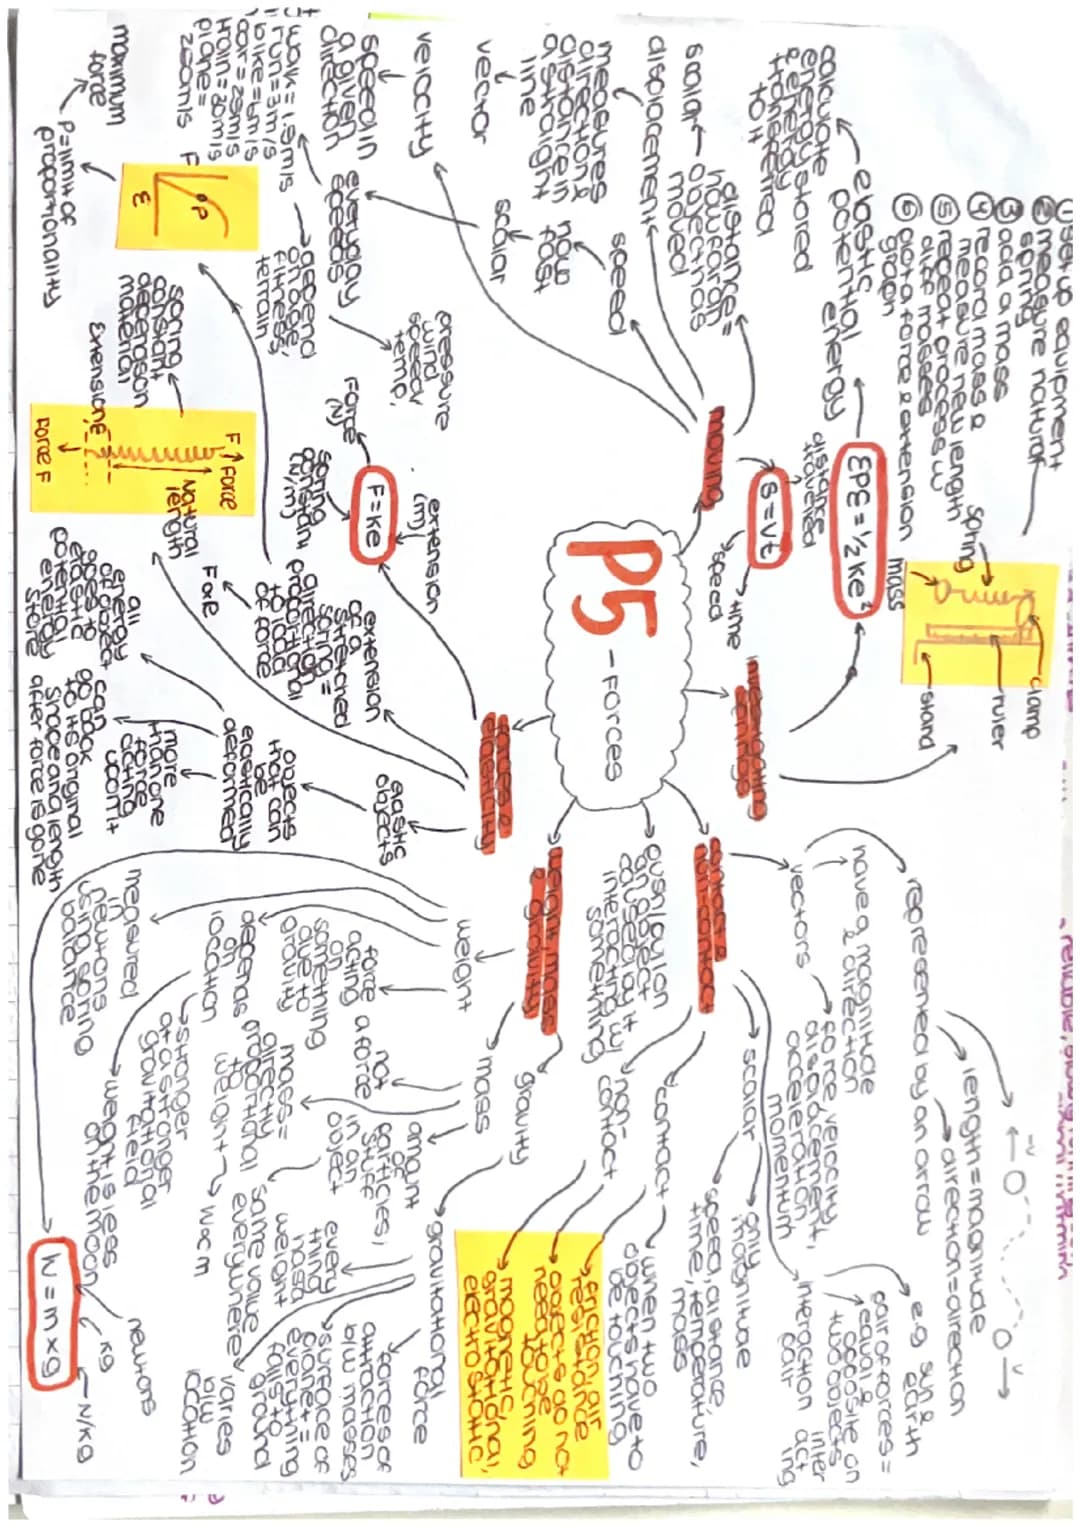 P5
-Forces
moving
distance =
how far an
object has
moved
scalar
displacement
measures
direction &
distance in
a straight
line
vector
speed
how
fast
scalar
velocity
speed in
a given
direction
everyday
speeds
walk = 1.5m/s
run = 3m/s
bike = 6m/s
car = 25m/s
train = 30m/s
plane =
250m/s
depend
on age,
fitness,
terrain
pressure
wind
speed,
temp,
s = vt
distance
travelled
speed
time
investigating
springs
EPE = ½ ke²
elastic
potential
energy
calculate
energy stored
& energy
transferred
to it
① set up equipment
② measure natural
spring
③ add a mass
④ record mass &
measure new length
⑤ repeat process w
diff masses
⑥ plot a force & extension
graph
spring
mass
clamp
ruler
stand
forces &
elasticity
F = ke
Force
(N)
spring
constant
(N/m)
extension
(m)
extension
of a
stretched
spring =
directional
proportional
to load
or force
Force
F
P
E
P = limit of
proportionality
maximum
force
spring
constant
depends on
material
F
Force
Natural
length
Extension E
Force F
elastic
objects
objects
that can
be
elastically
deformed
more
than one
force
acting
upon it
can
go back
to its original
shape and length
after force is gone
all
energy
of object
goes to
elastic
potential
energy
store
contact &
non-contact
push/pull on
an object
caused by it
interacting w
something
vectors
have a magnitude
& direction
represented by an arrow
length = magnitude
direction = direction
v
v
force, velocity,
displacement,
acceleration
momentum
interaction
pair
pair of forces =
equal &
opposite on
two objects
inter
act
ing
e.g sun &
earth
scalar
only
magnitude
speed, distance,
time, temperature,
mass
contact
when two
objects have to
be touching
friction, air
resistance
non-
contact
objects do not
need to be
touching
magnetic,
gravitational,
electrostatic,
weight, mass
& gravity
gravity
gravitational
force
forces of
attraction
b/w masses
surface of
planet =
everything
falls to
ground
varies
b/w
location
mass
amount
of
particles /
stuff
in an
object
every
thing
has a
weight
same value
everywhere
not
a force
mass =
directly
proportional
to
weight
W∝m
weight
force
acting
on
something
due to
gravity
depends
on
location
stronger
at a stronger
gravitational
field
weight is less
on the moon
measured
in
newtons
using spring
balance
W = m x g
newtons
kg
N/kg